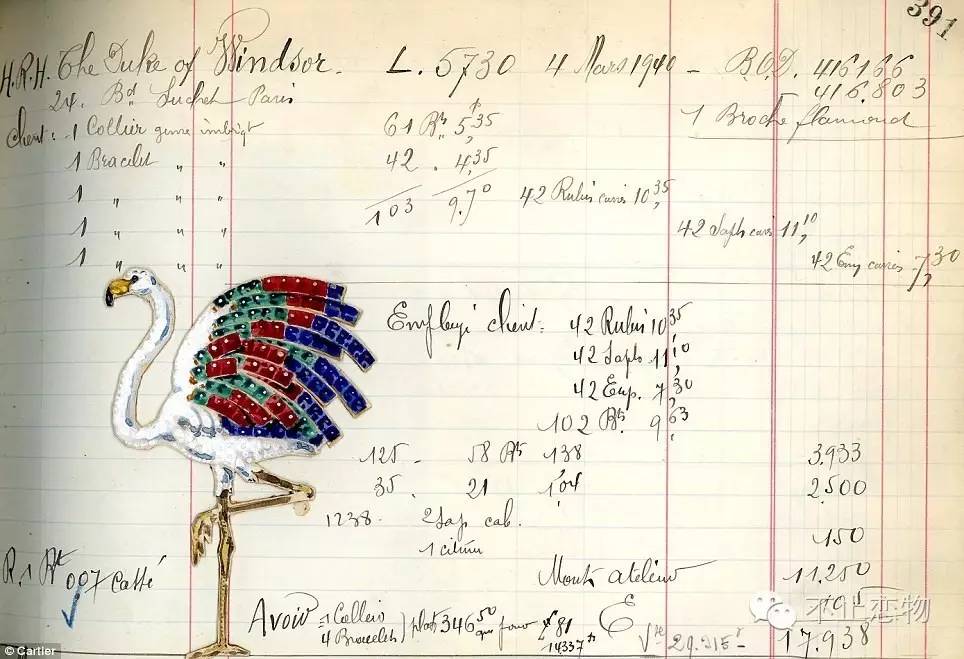 391
H.R.H. The Duke of Windsor. L. 5730 4 Mars 1940 - B.O.D. 416166
416.803
24. Bd Suchet Paris
1 Broche flamand
client: 1 Collier genre 61 Bts 5,35
1 Bracelet " " 42 . 4,35
1 " " " 103 9.70 42 Rubis carrés 10,35
1 " " " 42 Saph carrés 11,10
1 " " " 42 Em carrés 7,30
Employé client: 42 Rubis 10,35
42 Saph 11,10
42 Em. 7,30
102 Bts 9,63
125 - 58 Bts 138 3.933
35. 21 1,04 2,500
1238. 2 Sap cab. 150
1 citrine
R. 1 Bt 007 Cassé
11.250
105
Avoir = 1 Collier
4 Bracelets ) plat 346,50 81
14337
E
29.215
17.938
© Cartier
不止恋物